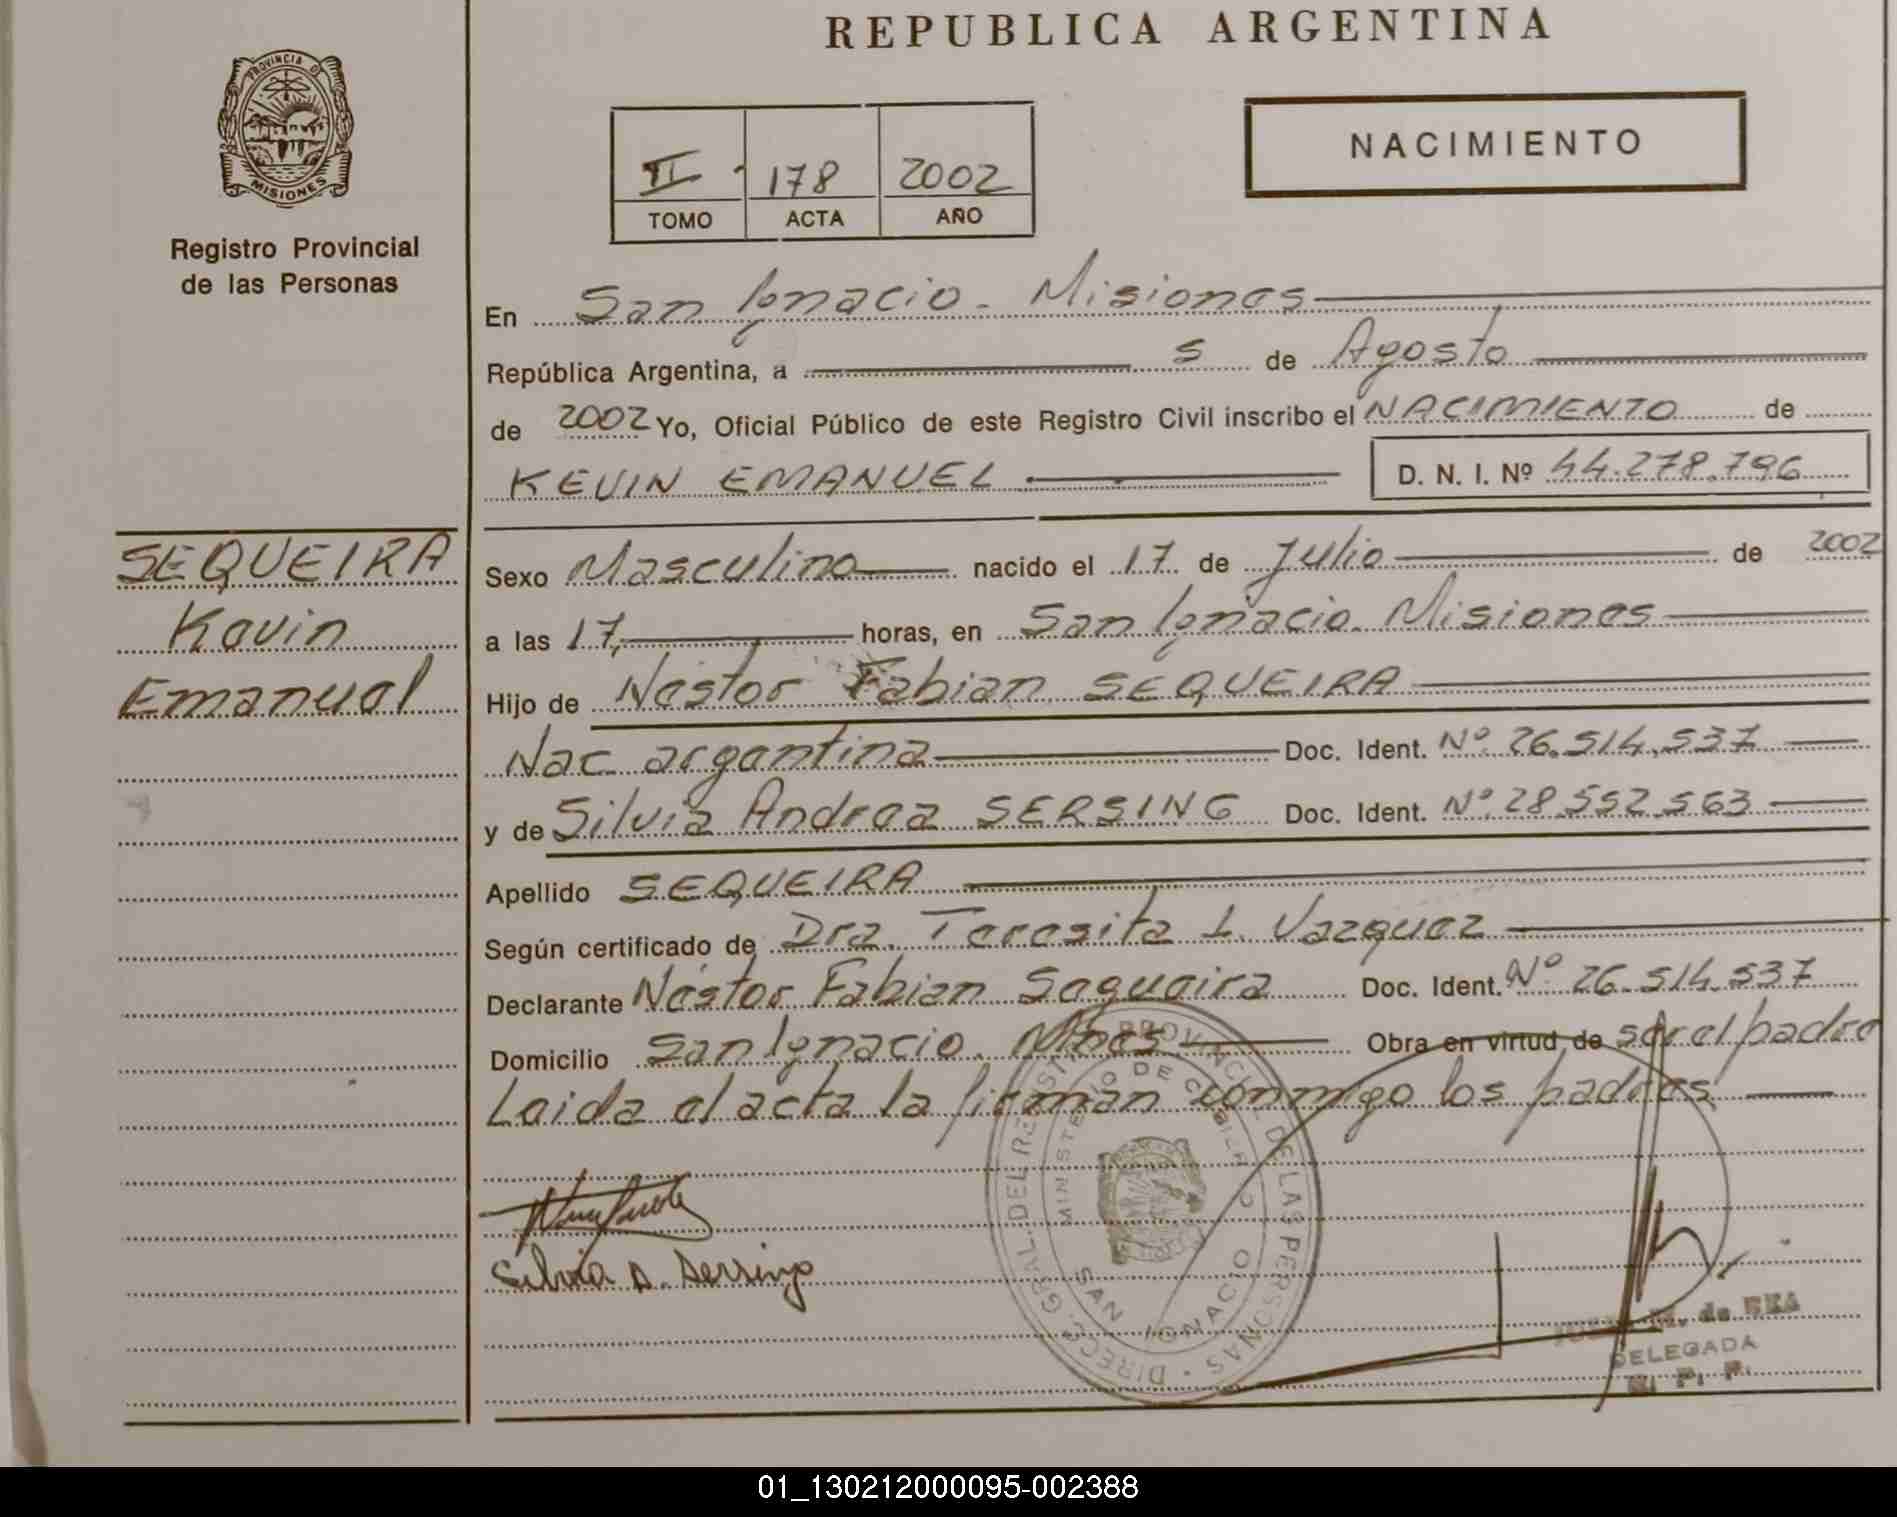 REPUBLICA ARGENTINA
PROVINCIA DE
MISIONES
Registro Provincial
de las Personas
II 178 2002
TOMO ACTA AÑO
NACIMIENTO
En San Ignacio - Misiones
República Argentina, a 5 de Agosto
de 2002 Yo, Oficial Público de este Registro Civil inscribo el NACIMIENTO de
KEVIN EMANUEL D. N. I. Nº 44.278.796
SEQUEIRA
Kevin
Emanuel
Sexo Masculino nacido el 17 de Julio de 2002
a las 17, horas, en San Ignacio. Misiones
Hijo de Néstor Fabian SEQUEIRA
Nac argentina Doc. Ident. Nº 26.514.537
y de Silvia Andrea SERSING Doc. Ident. Nº 28.552.563
Apellido SEQUEIRA
Según certificado de Dra. Teresita L. Vazquez
Declarante Néstor Fabian Sequeira Doc. Ident. Nº 26.514.537
Domicilio San Ignacio. Mnes Obra en virtud de ser el padre
Leida el acta la firman conmigo los padres
Silvia A. Sersing
DIRECC. GRAL. DEL REGIST. PROVINCIAL DE LAS PERSONAS
MINISTERIO DE GOBIERNO
SAN IGNACIO
de REA
DELEGADA
R. P. P.
01_130212000095-002388